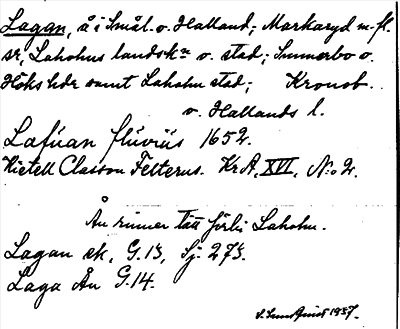 Lagan, å i Smål. o. Halland; Markaryd m. fl.
sr, Laholms landskn o. stad; Sunnerbo o.
Höks hdr samt Laholm stad; Kronob.
o. Hallands l.
Lafúan flúviús 1652.
Kietell Classon Felterus. KrA, XVI, N:o 2.
Ån rinner tätt förbi Laholm.
Lagan sk, G.13, Sj. 273.
Laga Ån G.14.
1937.